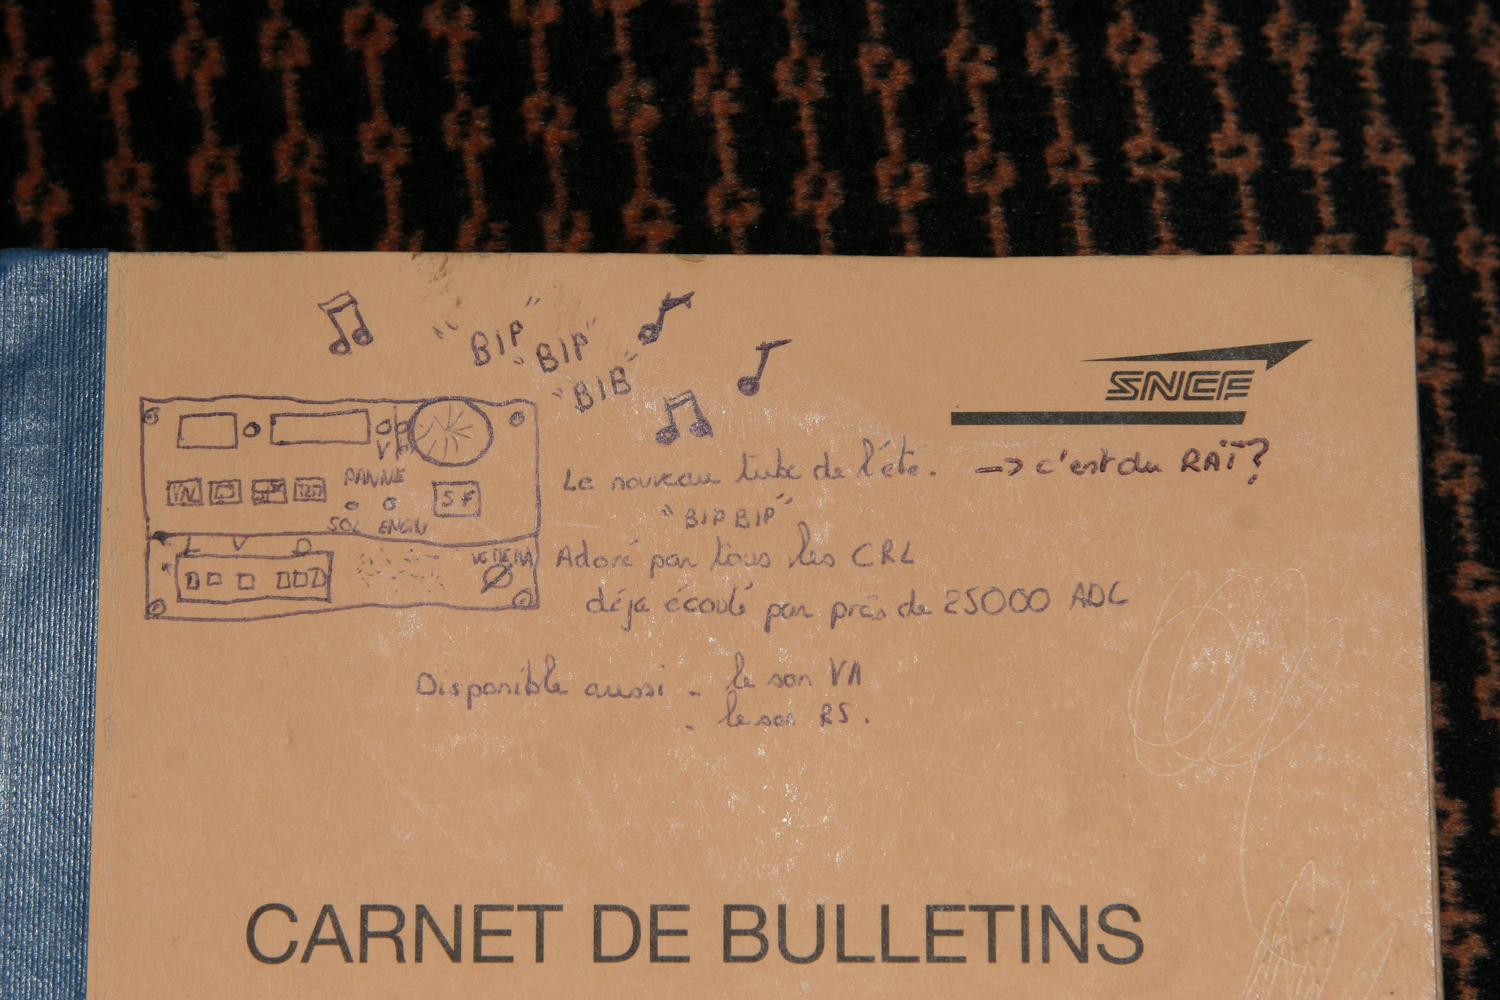 "BIP"
"BIP"
"BIB"
SNCF
PANNE
SF
SOL ENGIN
L V D
Le nouveau tube de l'été. -> c'est du RAÏ ?
"BIP BIP"
Adoré par tous les CRL
déja écouté par près de 25000 ADC
Disponible aussi - le son VA
- le son RS.
CARNET DE BULLETINS